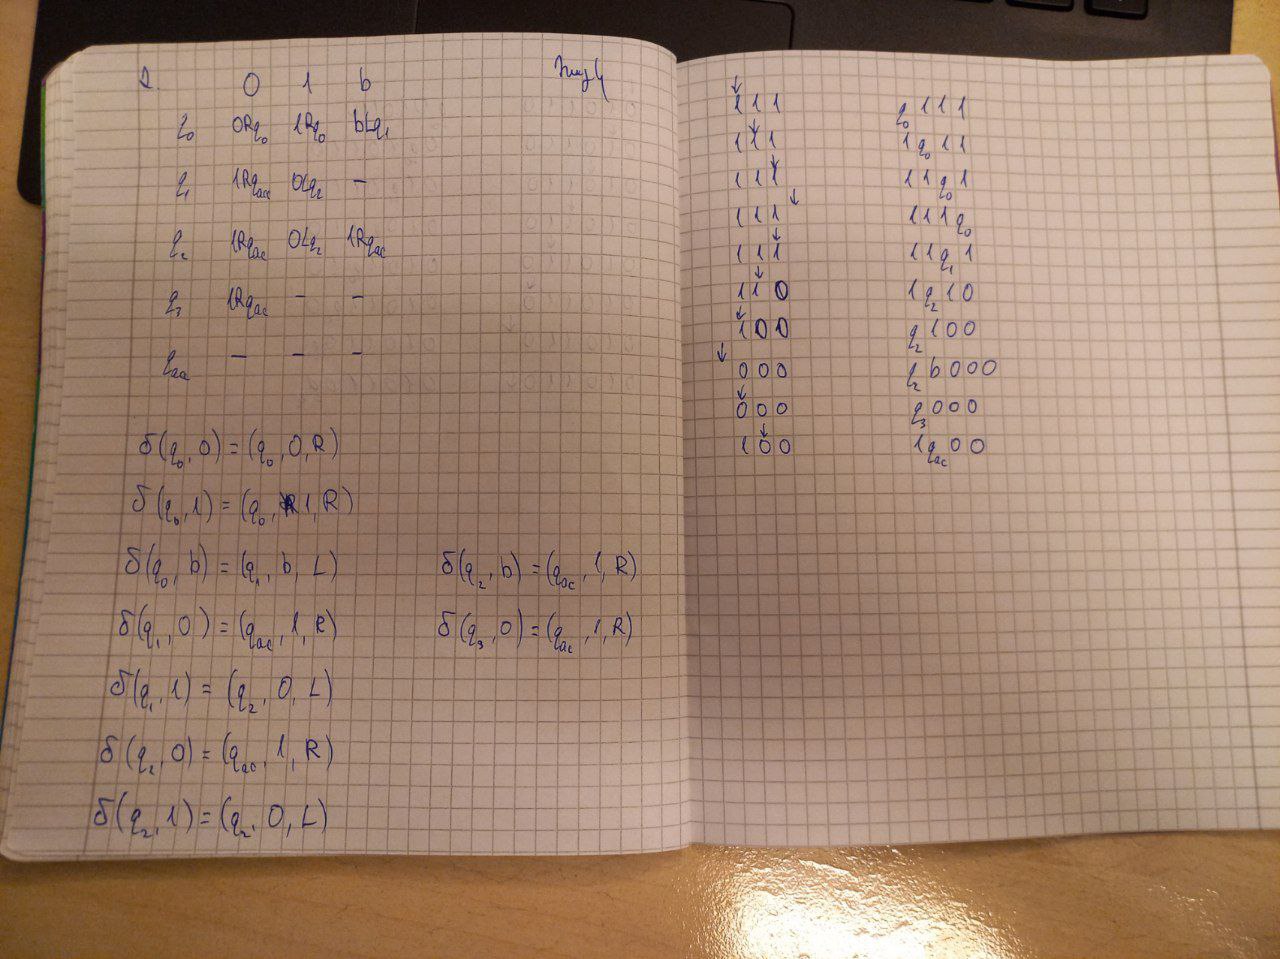 2.
0 1 b
q₀ 0Rq₀ 1Rq₀ bLq₁
q₁ 1Rqₐc 0Lq₂ —
q₂ 1Rqₐc 0Lq₂ 1Rqₐc
q₃ 1Rqₐc — —
qₐc — — —
δ(q₀, 0) = (q₀, 0, R)
δ(q₀, 1) = (q₀, 1, R)
δ(q₀, b) = (q₁, b, L)
δ(q₁, 0) = (qₐc, 1, R)
δ(q₁, 1) = (q₂, 0, L)
δ(q₂, 0) = (qₐc, 1, R)
δ(q₂, 1) = (q₂, 0, L)
δ(q₂, b) = (qₐc, 1, R)
δ(q₃, 0) = (qₐc, 1, R)
↓
111 q₀111
↓
111 1q₀11
↓
111 11q₀1
↓
111 111q₀
↓
111 11q₁1
↓
110 1q₂10
↓
100 q₂100
↓
000 q₂b000
↓
000 q₃000
↓
100 1qₐc00